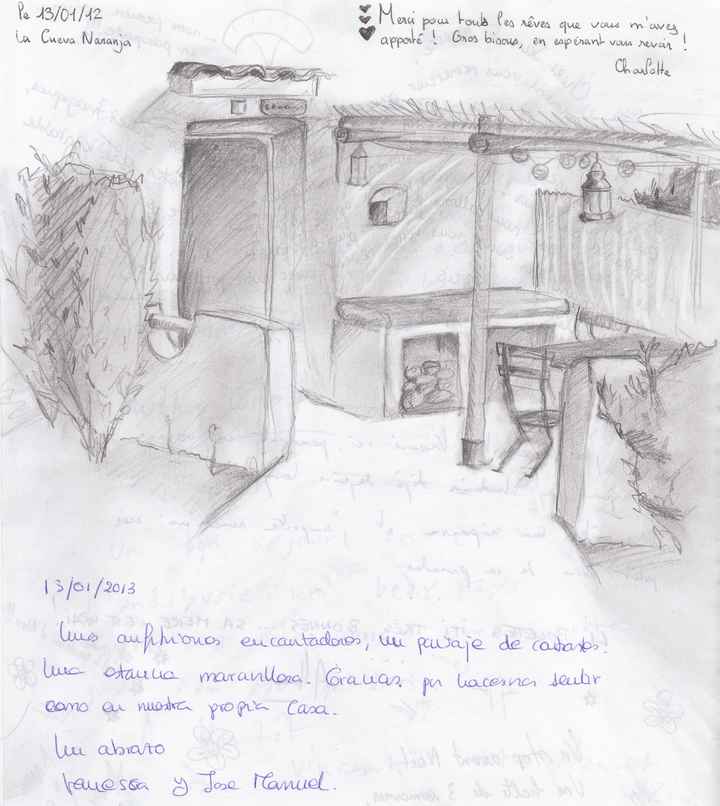 Le 13/01/12
La Cueva Naranja
Merci pour touts les rêves que vous m'avez
apporté ! Gros bisous, en espérant vous revoir !
Charlotte
13/01/2013
Unos anfitriones encantadores, un paisaje de
Una estancia maravillosa. Gracias por hacernos sentir
como en nuestra propia casa.
Un abrazo
Vanessa y Jose Manuel.